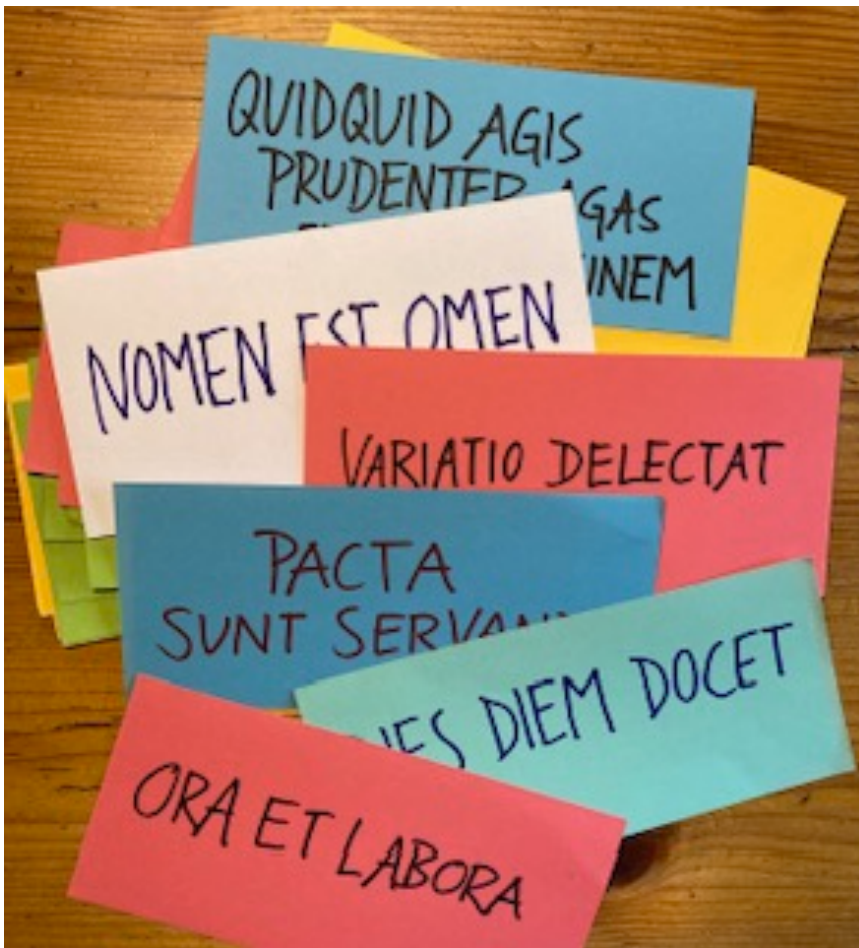 QUIDQUID AGIS
PRUDENTER AGAS
FINEM
NOMEN EST OMEN
VARIATIO DELECTAT
PACTA
SUNT
DIEM DOCET
ORA ET LABORA